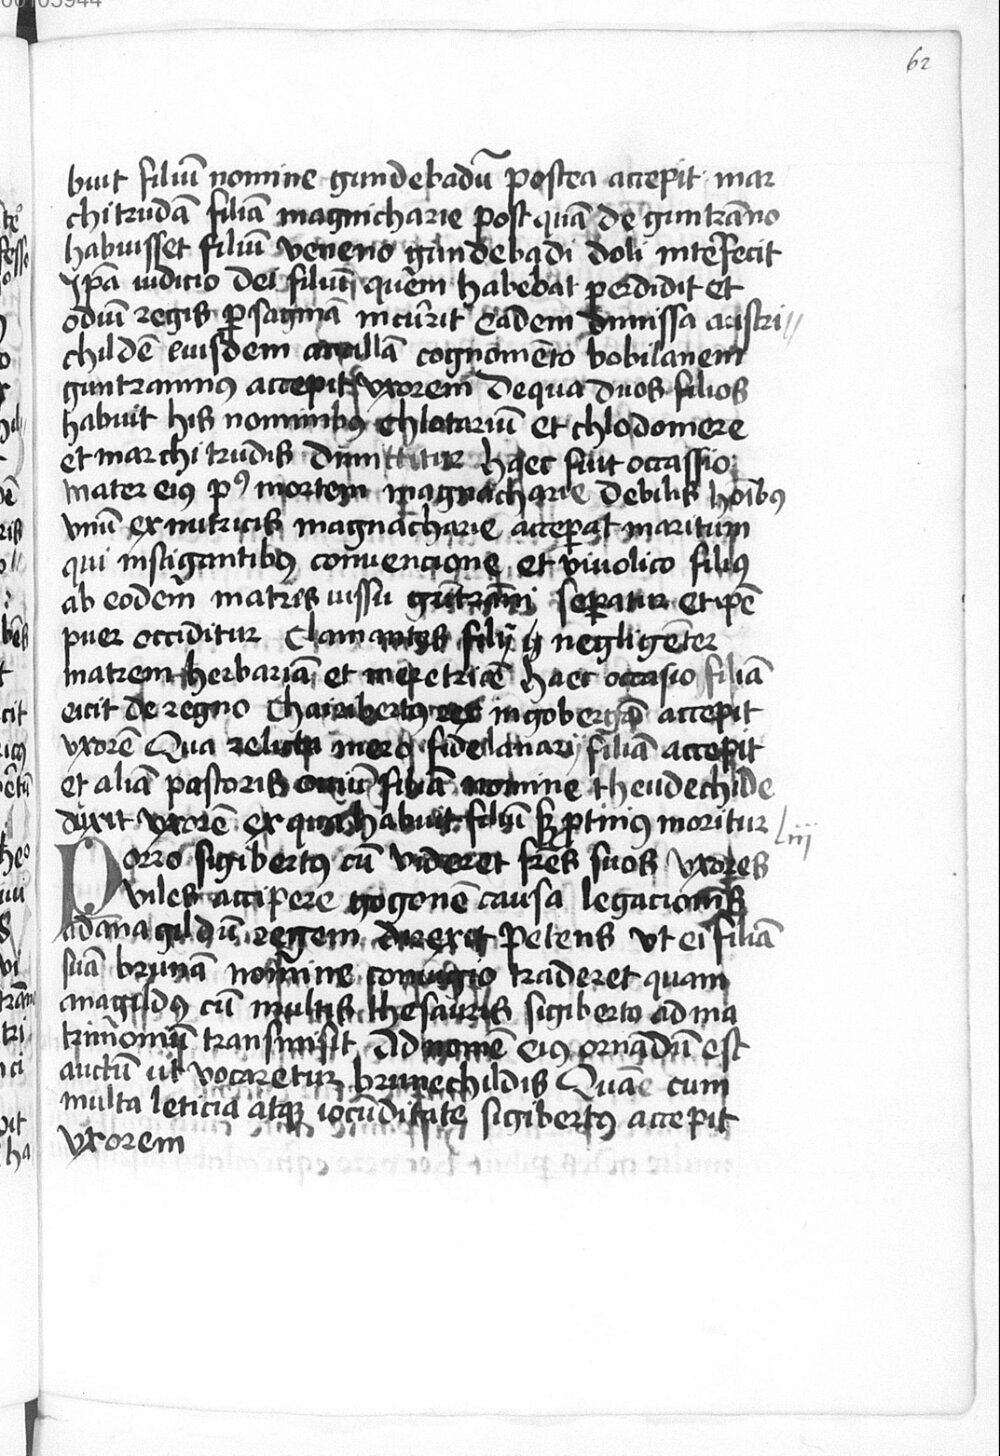 62
buit filiū nomine gundebadū postea accepit mar
chitrudā filiā magnicharie post quā de guntrāno
habuisset filiū veneno gundebadi doli interfecit
ipā iudicio dei filiū quem habebat perdidit et
odiū regis p saginā incurrit Eadem dimissa austri
childē euisdem ancillā cognomēto bobilanem
guntramnus accepit vxorem de qua duos filios
habuit his nominibus Chlotariū et chlodomere
et marchitrudis dimittitur haec fuit occassio
mater eius p⁹ mortem magnacharie debilis hoībus
vnū ex nutricis magnacharie acceperat maritum
qui instigantibus convencione et viuolico filius
ab eodem matris iussu guntrāni separatur et ipē
puer occiditur Clamantes filij negligēter
matrem herbariā et meretricē haec occasio filiā
eicit de regno Charibertus rex ingobergā accepit
vxorē Qua relicta merofidē lanarij filiā accepit
et aliā pastoris ouiū filiā nomine theudechilde
dyxit vxorē ex qua habuit filiū sz ptinus moritur
Liij
Porro sigibertus cū videret frēs suos vxores
viles accipere gogonē causa legacionis
ad anagildū regem direxit petens vt ei filiā
suā brunā nomine coniugio traderet quam
anagildus cū multis thesauris sigiberto ad ma
trimoniū transmisit Ad nomē eius ornādū est
auctū ut vocaretur brunechildis Quā cum
multa leticia atq iocūditate sigibertus accepit
vxorem